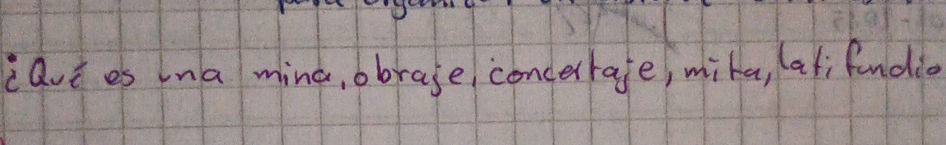 ¿Qué es una mina, obraje, concertaje, mita, latifundio